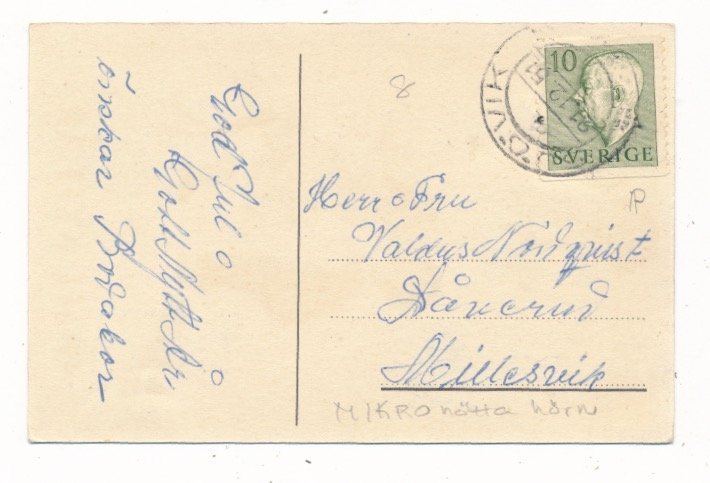 God Jul o
Gott Nytt År
önskar
10
SVERIGE
8
Herr o Fru
Valdus Nordquist
Millesvik
MIKRO nötta hörn